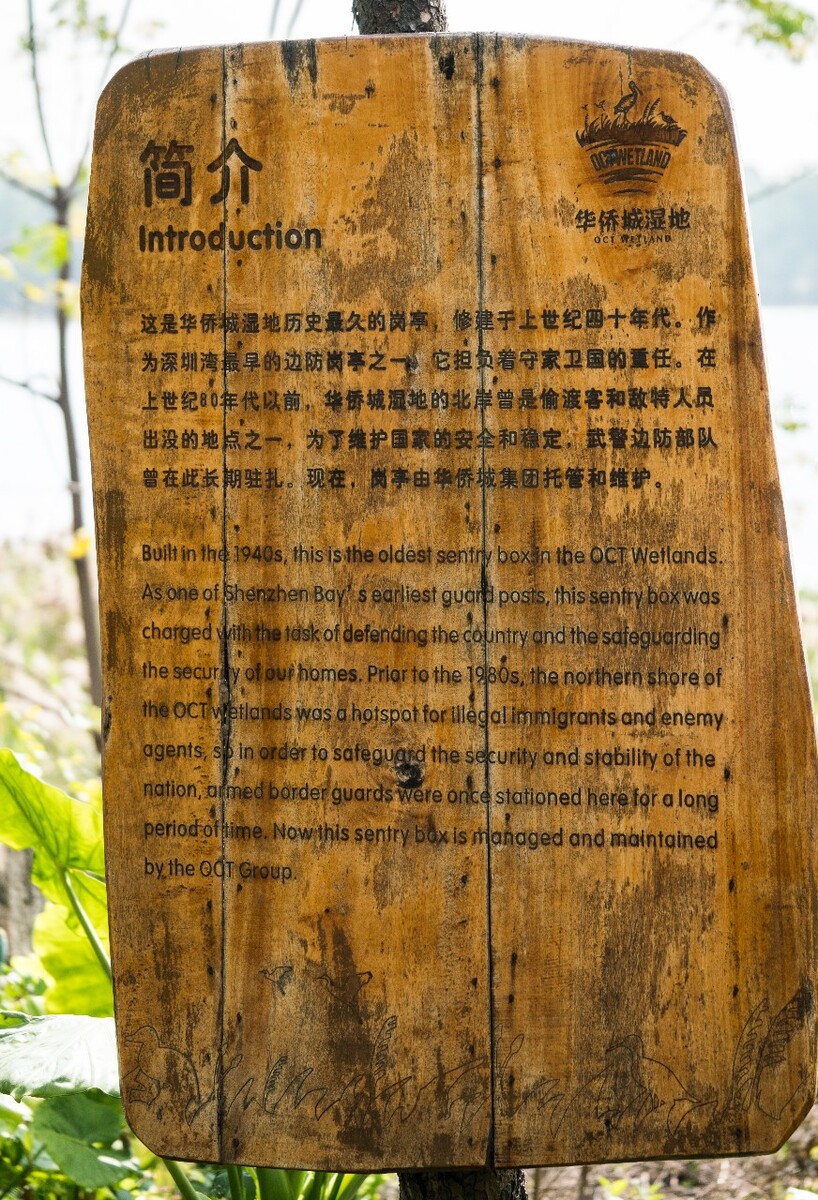 简介
Introduction
OCT WETLAND
华侨城湿地
OCT WETLAND
这是华侨城湿地历史最久的岗亭，修建于上世纪四十年代。作
为深圳湾最早的边防岗亭之一，它担负着守家卫国的重任。在
上世纪80年代以前，华侨城湿地的北岸曾是偷渡客和敌特人员
出没的地点之一，为了维护国家的安全和稳定，武警边防部队
曾在此长期驻扎。现在，岗亭由华侨城集团托管和维护。
Built in the 1940s, this is the oldest sentry box in the OCT Wetlands.
As one of Shenzhen Bay's earliest guard posts, this sentry box was
charged with the task of defending the country and the safeguarding
the security of our homes. Prior to the 1980s, the northern shore of
the OCT wetlands was a hotspot for illegal immigrants and enemy
agents, so in order to safeguard the security and stability of the
nation, armed border guards were once stationed here for a long
period of time. Now this sentry box is managed and maintained
by the OCT Group.